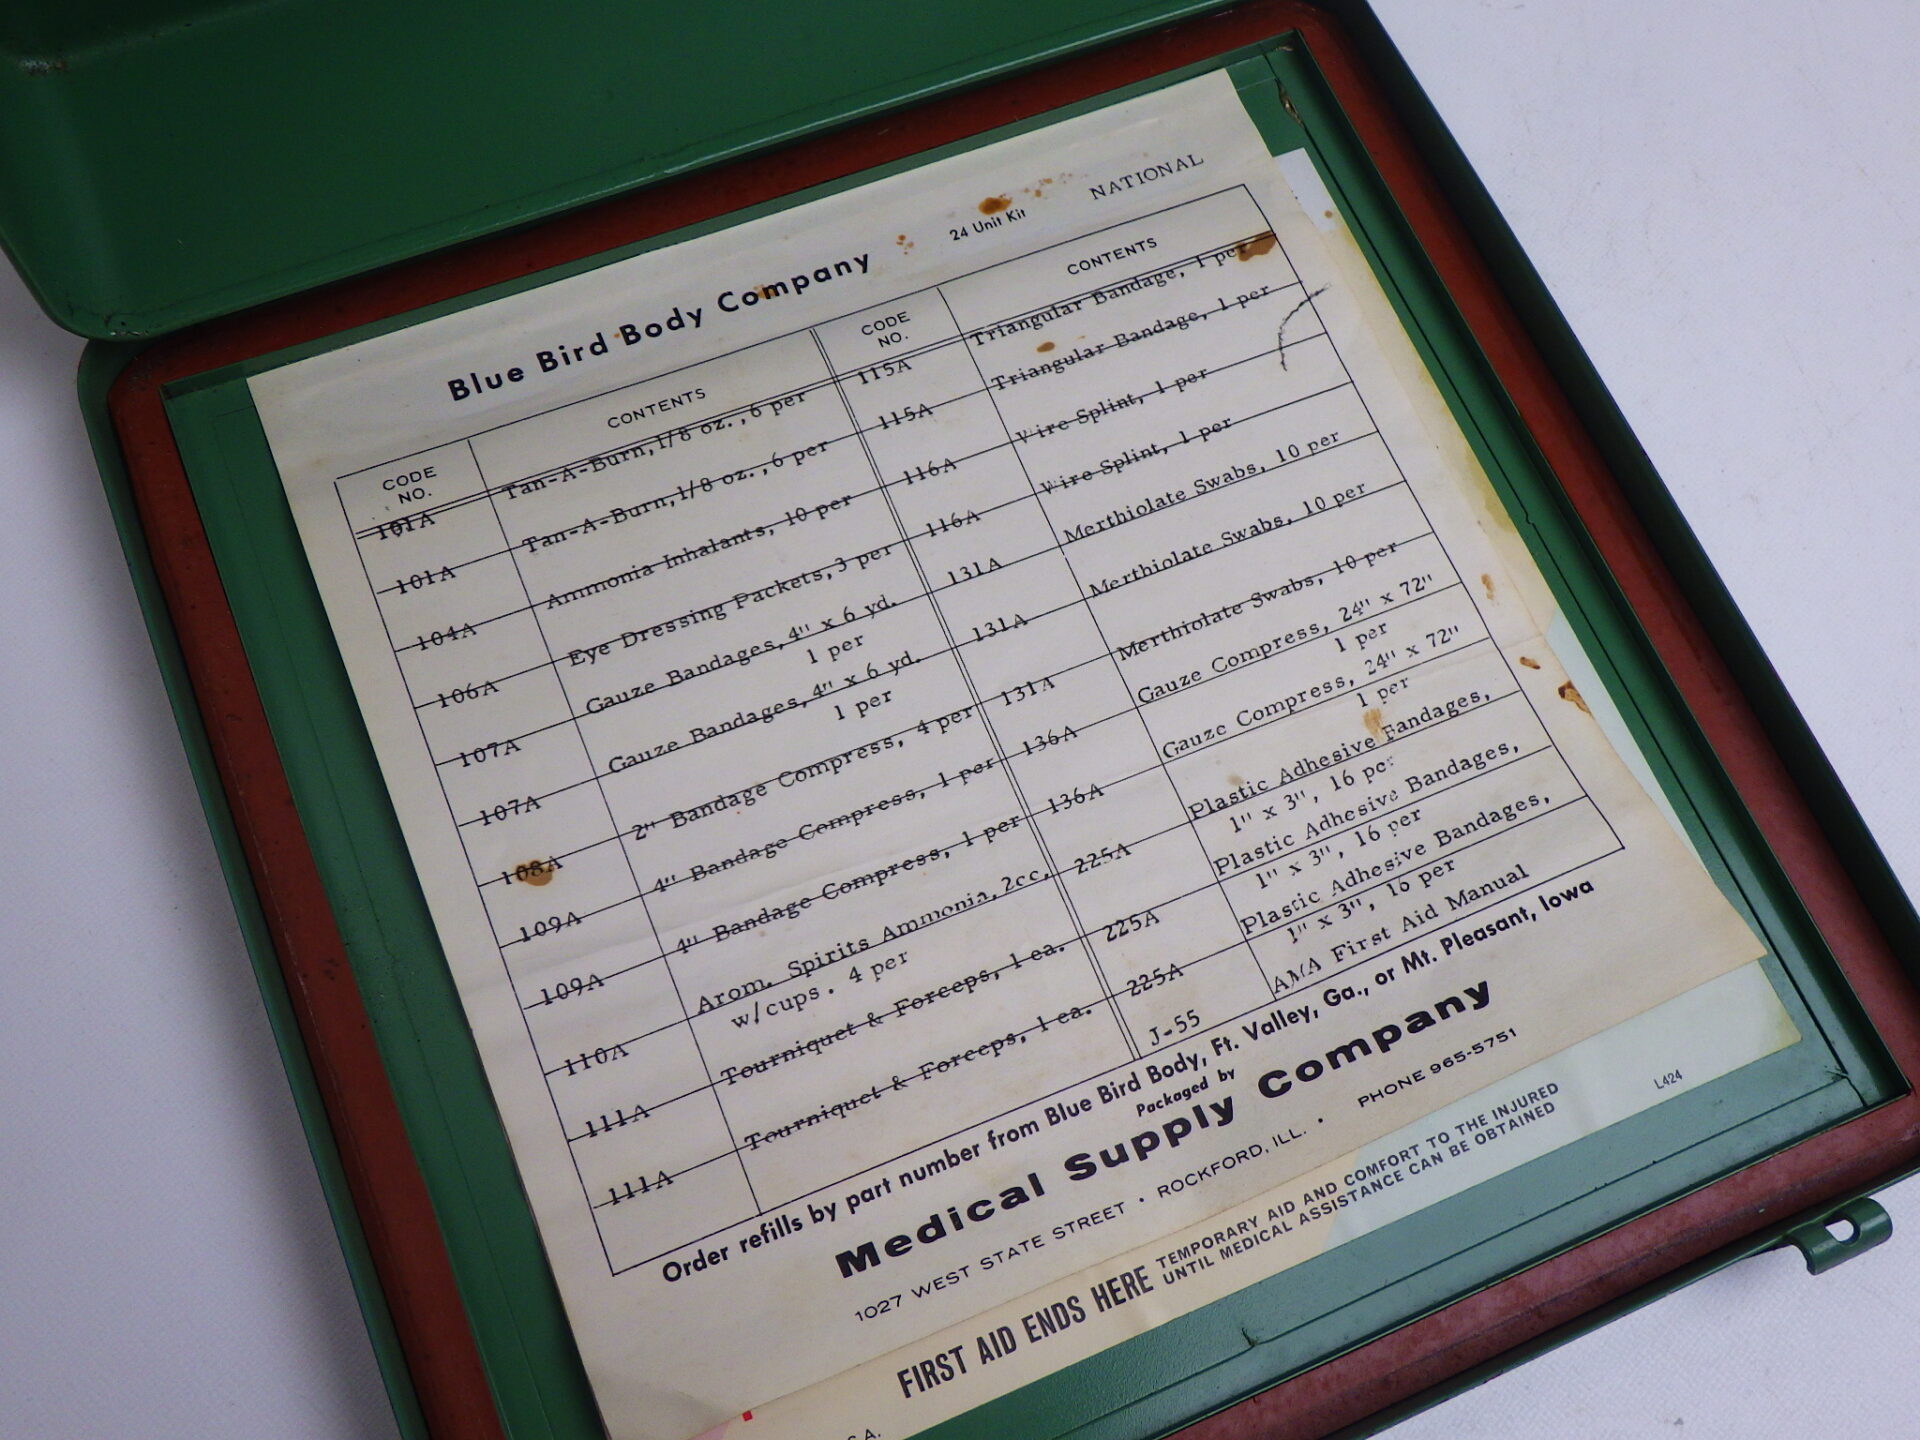 Blue Bird Body Company
24 Unit Kit
NATIONAL
CODE NO.
CONTENTS
101A Tan-A-Burn, 1/8 oz., 6 per
101A Tan-A-Burn, 1/8 oz., 6 per
104A Ammonia Inhalants, 10 per
106A Eye Dressing Packets, 3 per
107A Gauze Bandages, 4" x 6 yd.
1 per
107A Gauze Bandages, 4" x 6 yd.
1 per
108A 2" Bandage Compress, 4 per
109A 4" Bandage Compress, 1 per
109A 4" Bandage Compress, 1 per
110A Arom. Spirits Ammonia, 2cc,
w/cups. 4 per
111A Tourniquet & Forceps, 1 ea.
111A Tourniquet & Forceps, 1 ea.
CODE NO.
CONTENTS
115A Triangular Bandage, 1 per
115A Triangular Bandage, 1 per
116A Wire Splint, 1 per
116A Wire Splint, 1 per
131A Merthiolate Swabs, 10 per
131A Merthiolate Swabs, 10 per
131A Merthiolate Swabs, 10 per
136A Gauze Compress, 24" x 72"
1 per
136A Gauze Compress, 24" x 72"
1 per
225A Plastic Adhesive Bandages,
1" x 3", 16 per
225A Plastic Adhesive Bandages,
1" x 3", 16 per
225A Plastic Adhesive Bandages,
1" x 3", 16 per
J-55 AMA First Aid Manual
Order refills by part number from Blue Bird Body, Ft. Valley, Ga., or Mt. Pleasant, Iowa
Packaged by
Medical Supply Company
1027 WEST STATE STREET • ROCKFORD, ILL. • PHONE 965-5751
FIRST AID ENDS HERE
TEMPORARY AID AND COMFORT TO THE INJURED
UNTIL MEDICAL ASSISTANCE CAN BE OBTAINED
L424